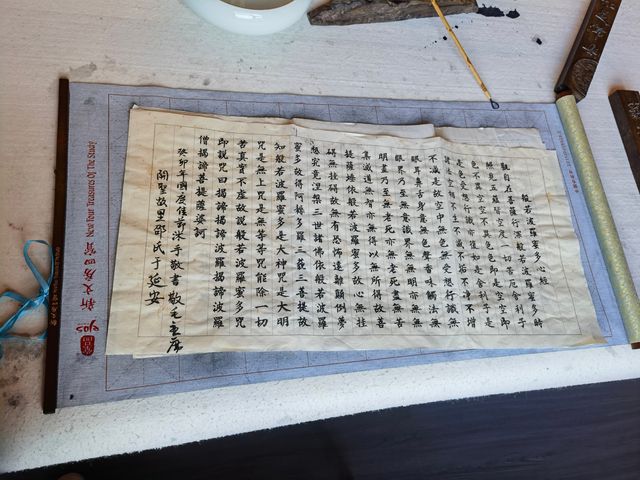 般若波羅蜜多心經
觀自在菩薩行深般若波羅蜜多時
照見五蘊皆空度一切苦厄舍利子
色不異空空不異色色即是空空即
是色受想行識亦復如是舍利子是
諸法空相不生不滅不垢不淨不增
不減是故空中無色無受想行識無
眼耳鼻舌身意無色聲香味觸法無
眼界乃至無意識界無無明亦無無
明盡乃至無老死亦無老死盡無苦
集滅道無智亦無得以無所得故菩
提薩埵依般若波羅蜜多故心無挂
礙無挂礙故無有恐怖遠離顛倒夢
想究竟涅槃三世諸佛依般若波羅
蜜多故得阿耨多羅三藐三菩提故
知般若波羅蜜多是大神咒是大明
咒是無上咒是無等等咒能除一切
苦真實不虛故說般若波羅蜜多咒
即說咒曰揭諦揭諦波羅揭諦波羅
僧揭諦菩提薩婆訶
癸卯年國慶佳節沐手敬書
關聖故里邵氏于延安
新文房四寶
New Four Treasures of The Study